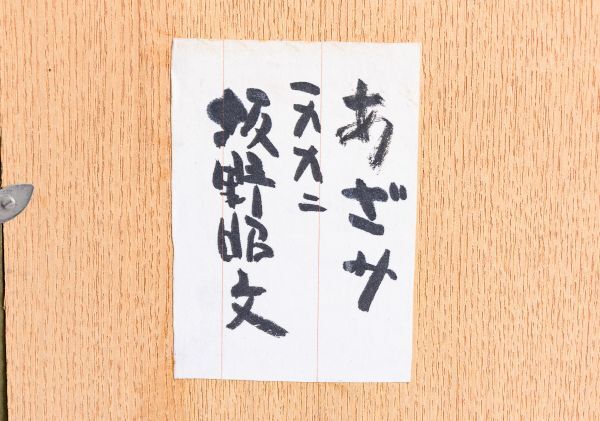 あざみ
一九九二
坂野昭文